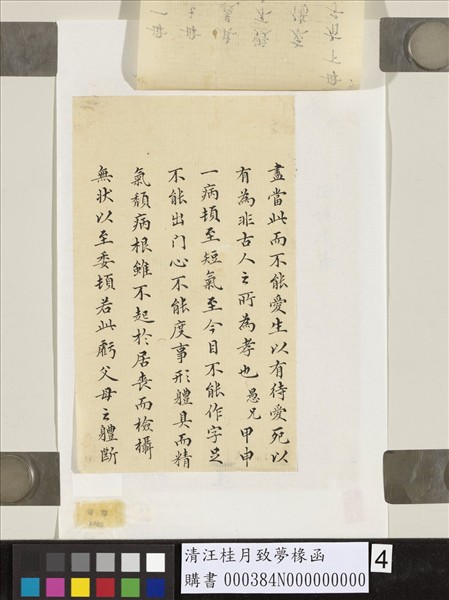 盡當此而不能愛生以有待愛死以
有為非古人之所為孝也愚兄甲申
一病頓至短氣至今目不能作字足
不能出门心不能度事形體具而精
氣頹病根雖不起於居喪而檢攝
無状以至委頓若此虧父母之體斷
清汪桂月致夢橡函
購書 000384N000000000
4